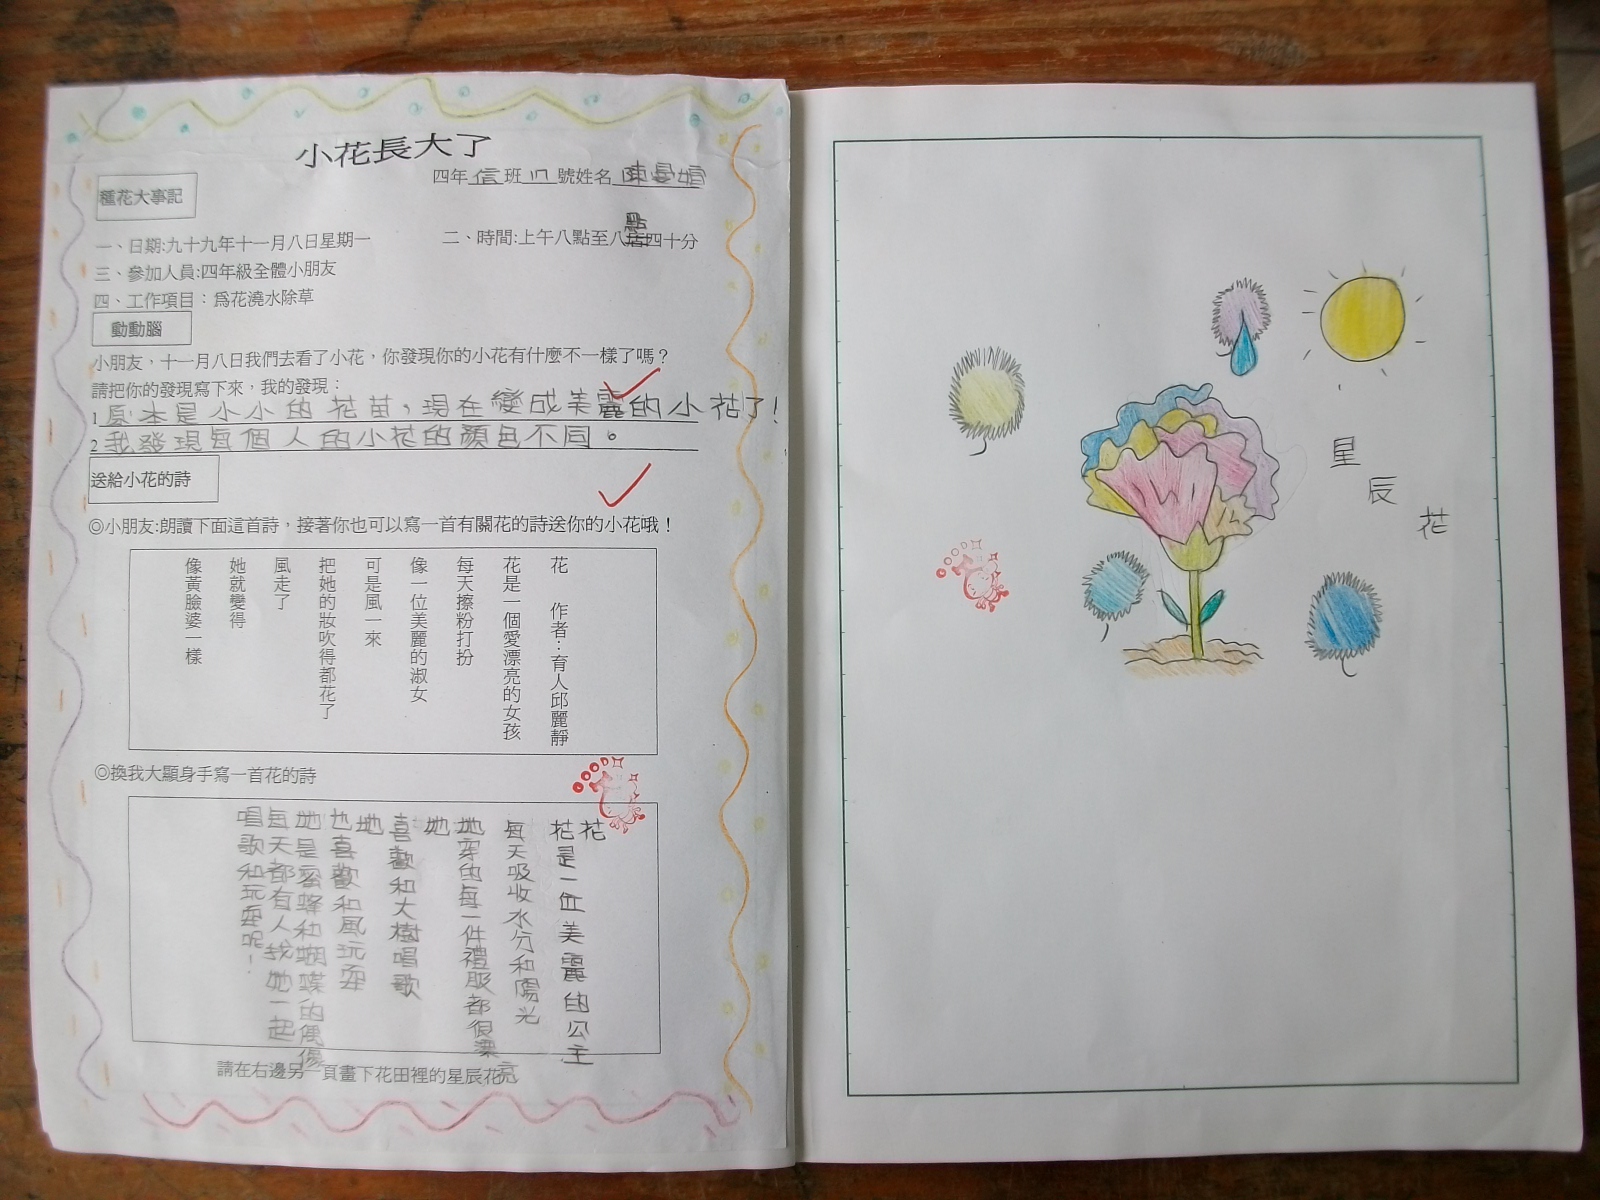 小花長大了
四年信班17號姓名陳
種花大事記
一、日期:九十九年十一月八日星期一
二、時間:上午八點至八點四十分
三、參加人員:四年級全體小朋友
四、工作項目：為花澆水除草
動動腦
小朋友，十一月八日我們去看了小花，你發現你的小花有什麼不一樣了嗎？
請把你的發現寫下來，我的發現：
1 原本是小小的花苗，現在變成美麗的小花了！
2 我發現每個人的小花的顏色不同。
送給小花的詩
◎小朋友:朗讀下面這首詩，接著你也可以寫一首有關花的詩送你的小花哦！
花 作者：育人邱麗靜
花是一個愛漂亮的女孩
每天擦粉打扮
像一位美麗的淑女
可是風一來
把她的妝吹得都花了
風走了
她就變得
像黃臉婆一樣
◎換我大顯身手寫一首花的詩
GOOD
花
花是一位美麗的公主
每天吸收水分和陽光
她穿的每一件禮服都很漂亮
她
喜歡和大樹唱歌
她
也喜歡和風玩耍
她是蜜蜂和蝴蝶的偶像
每天都有人找她一起
唱歌和玩耍呢！
請在右邊另一頁畫下花田裡的星辰花
星辰花
GOOD